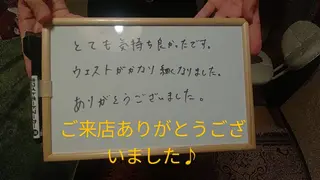 とても気持ち良かったです。
ウエストがかなり細くなりました。
ありがとうございました。
ご来店ありがとうござ
いました♪